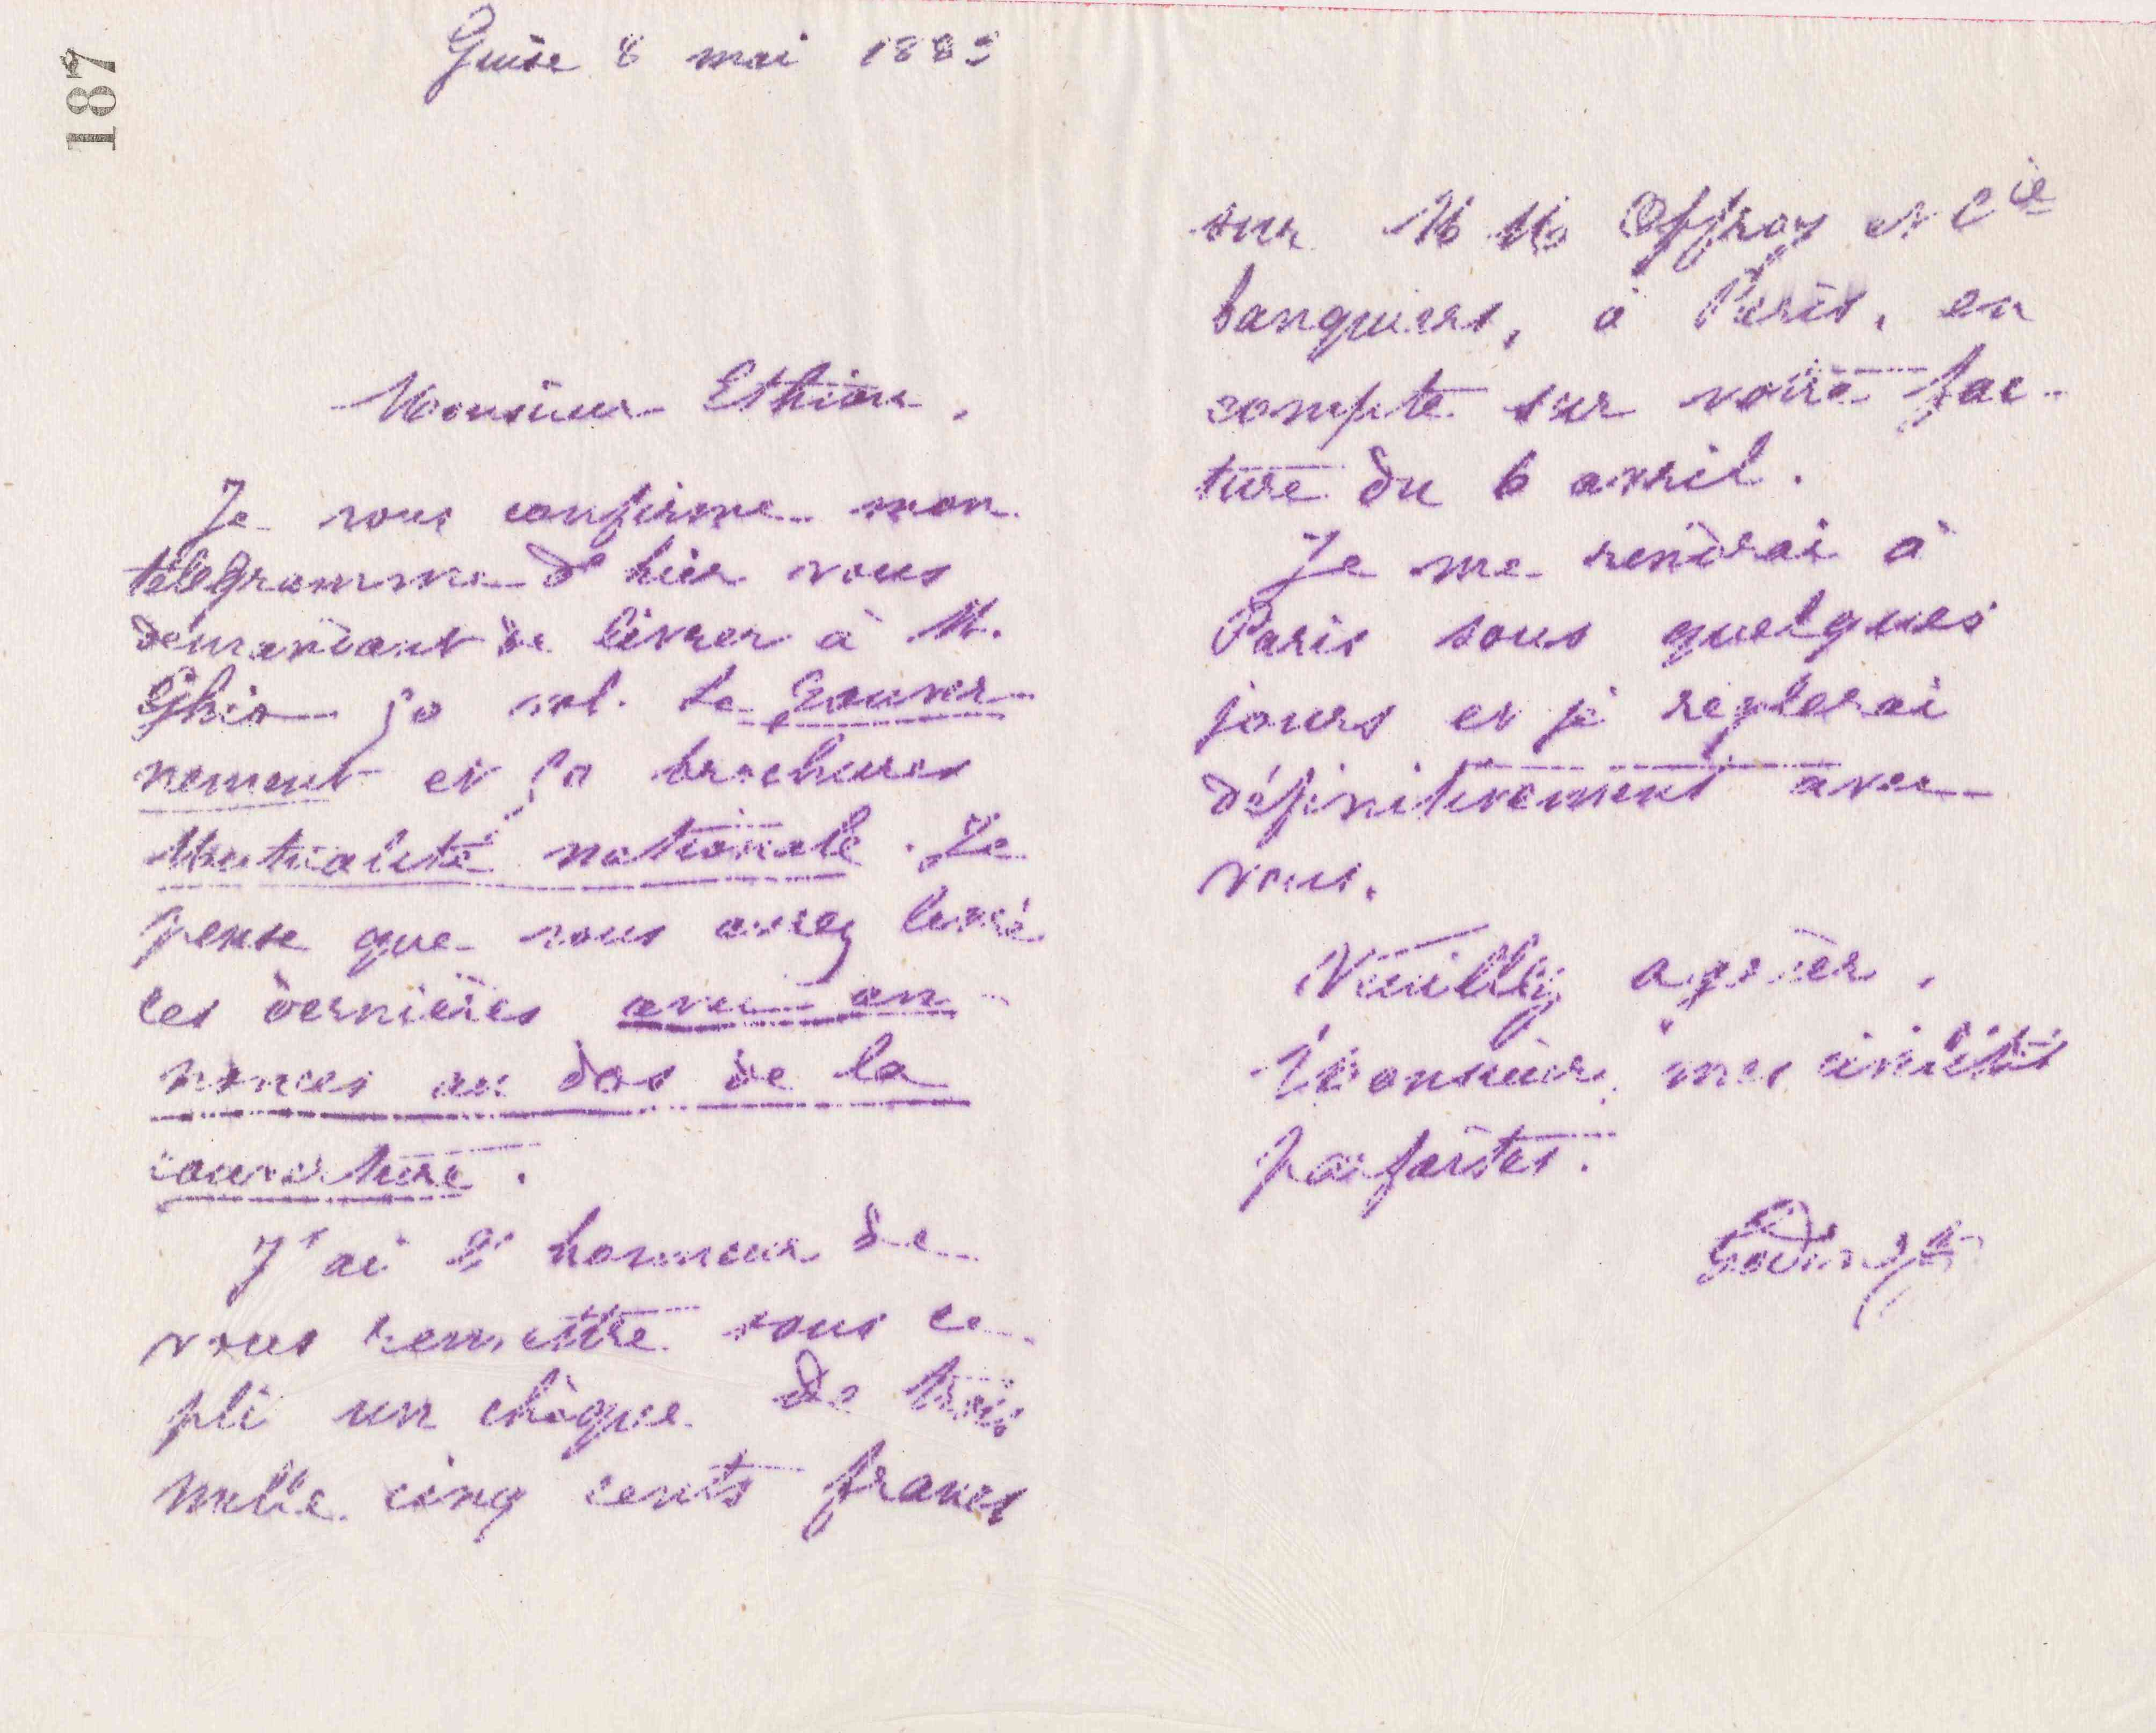 187
Guise 8 mai 1883
Monsieur Ethiou.
Je vous confirme mon
télégramme d'hier vous
demandant de livrer à M.
Ghio 50 vol. Le Gouver-
nement et 50 brochures
Mutualité nationale. Je
pense que vous aurez livré
les dernières avec an-
nonces au dos de la
couverture.
J'ai l'honneur de
vous remettre sous ce
pli un chèque de trois
mille cinq cents francs
sur MM Offroy et Cie
banquiers, à Paris, en
compte sur votre fac-
ture du 6 avril.
Je me rendrai à
Paris sous quelques
jours et je règlerai
définitivement avec
vous.
Veuillez agréer,
Monsieur, mes civilités
parfaites.
Godin